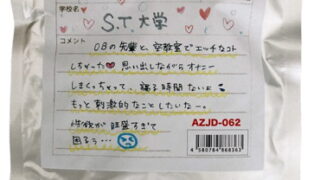 S.T.大学
コメント
OBの先輩と、空教室でエッチなコト
しちゃった♡思い出しながらオナニー
しまくっちゃって、寝る時間ないよ
もっと刺激的なことしたいなー。
性欲が旺盛すぎて
困るぅ…
AZJD-062
4580784868363